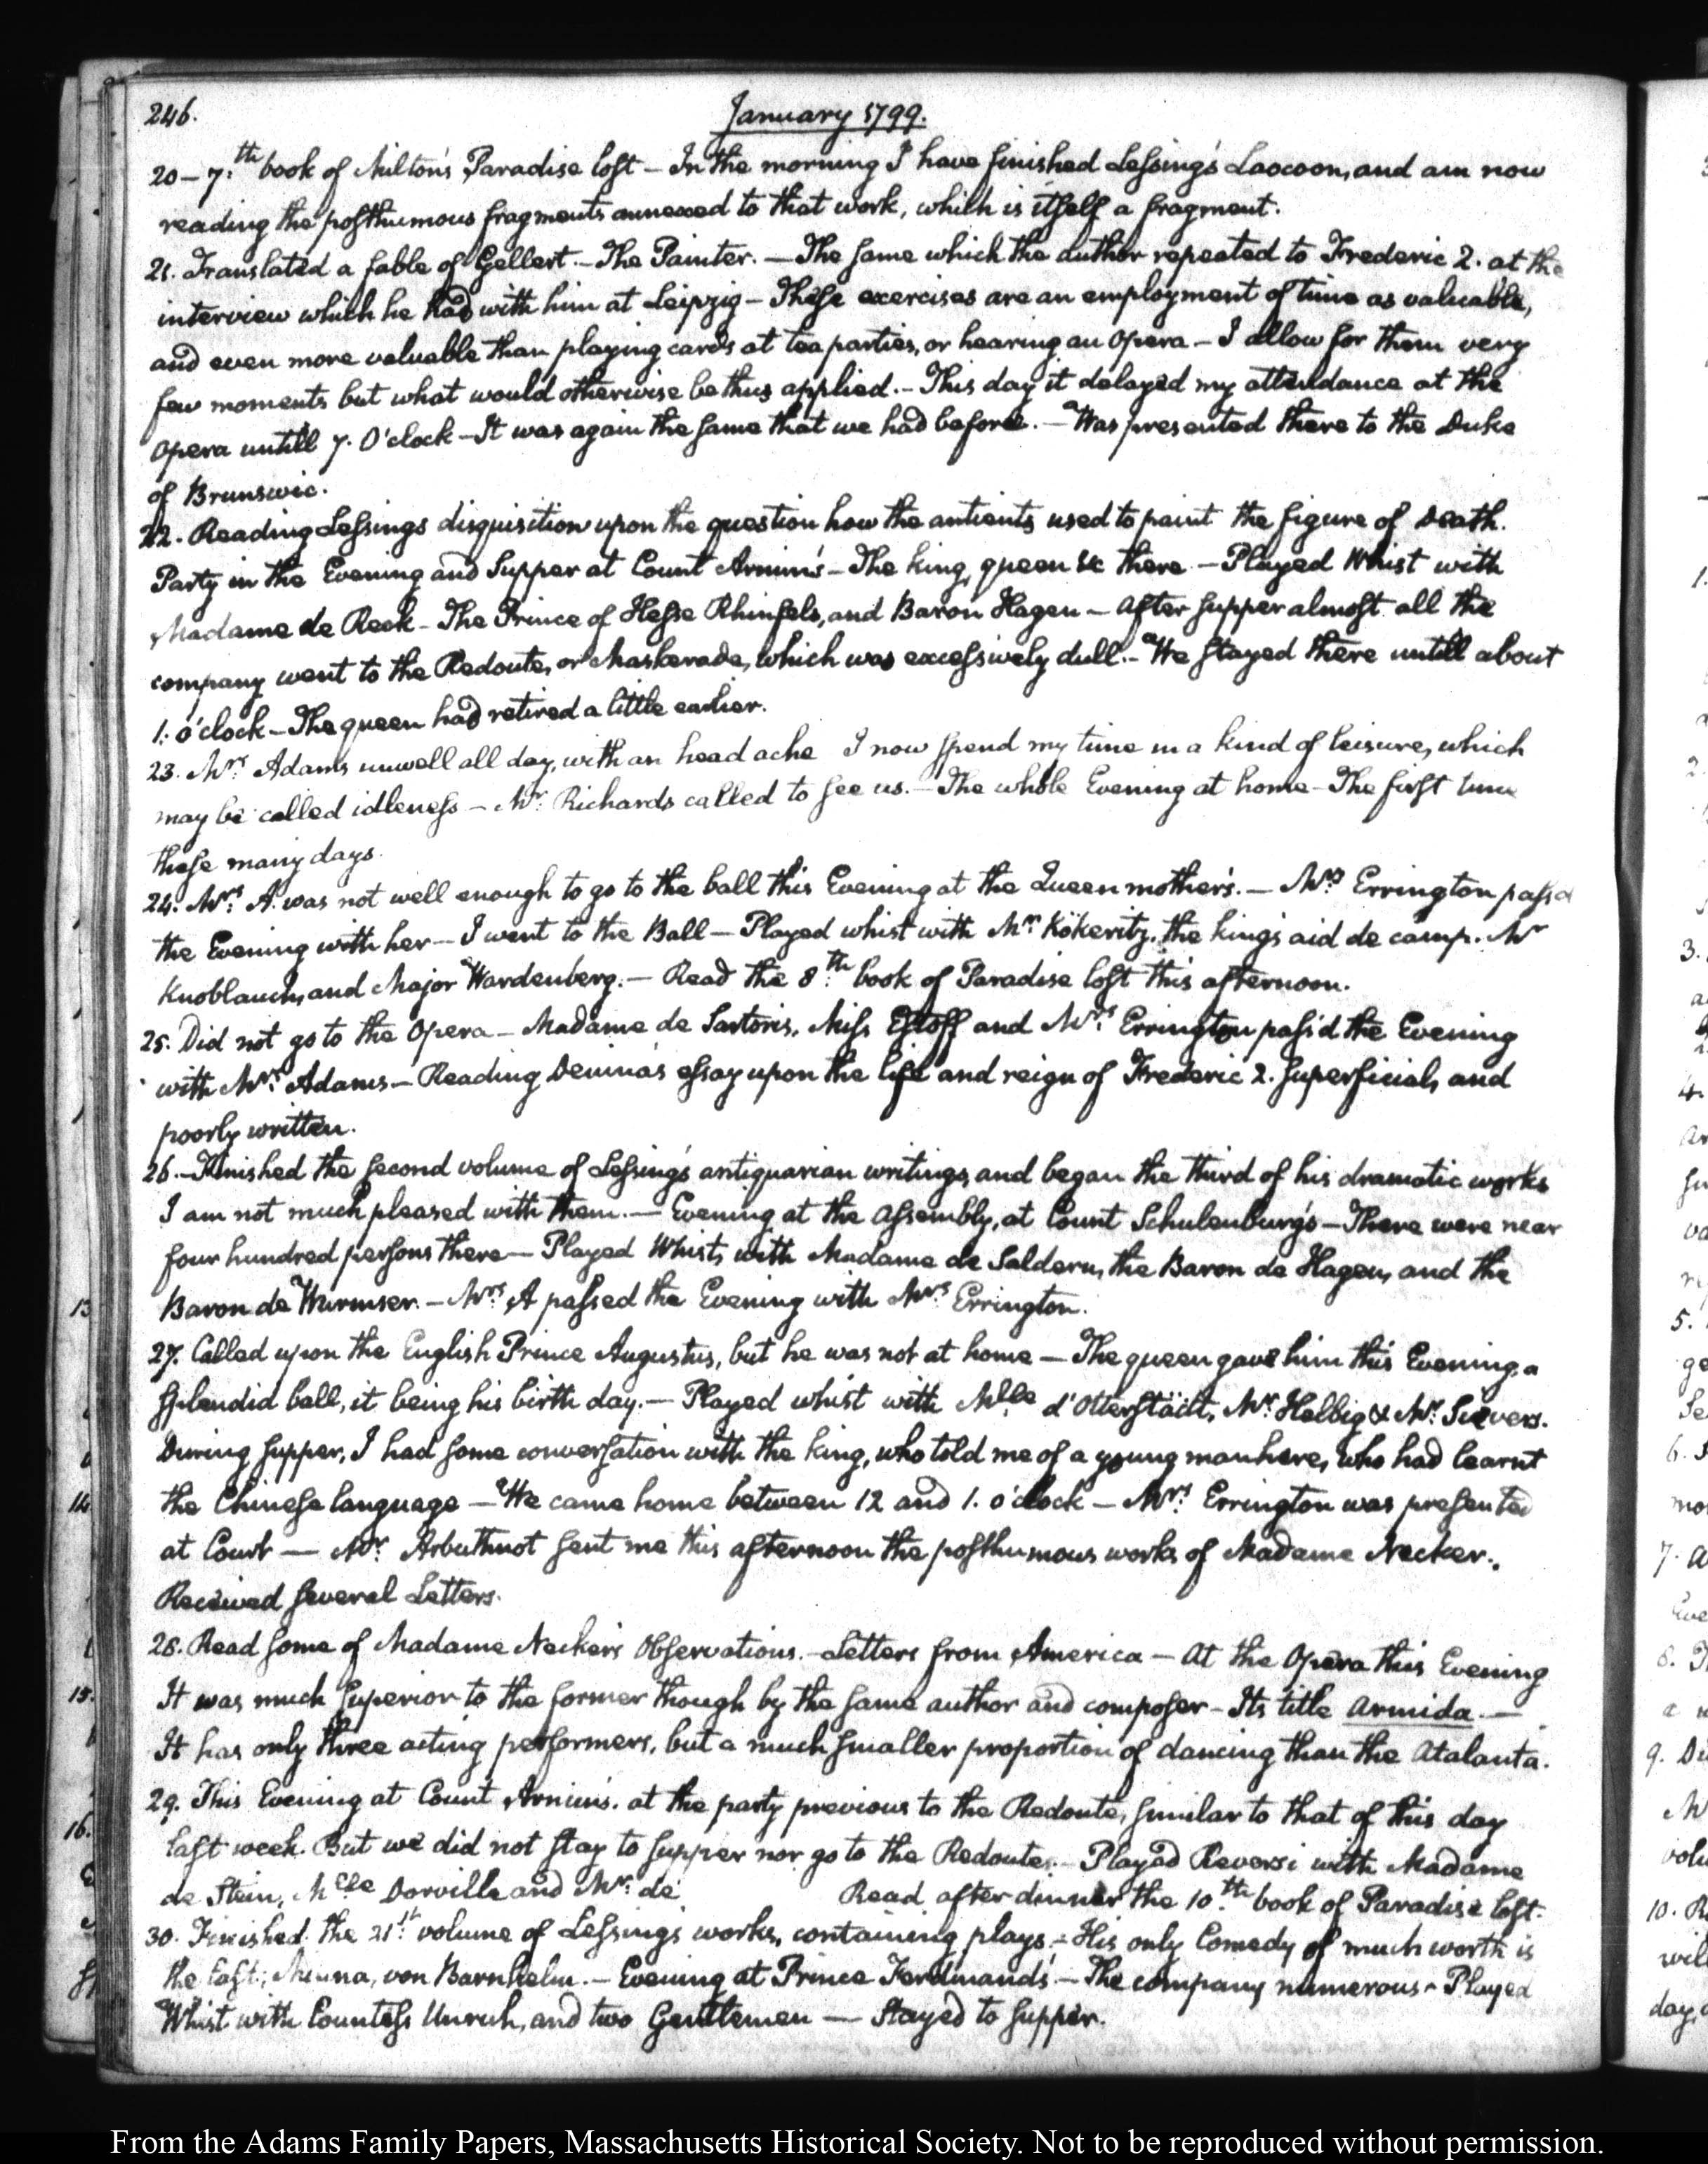 246.
January 1799.
20 – 7.th book of Milton's Paradise lost – In the morning I have finished Lessing's Laocoon, and am now
reading the posthumous fragments annexed to that work, which is itself a fragment.
21. Translated a fable of Gellert. – The Painter. – The same which the author repeated to Frederic 2. at the
interview which he had with him at Leipzig – These exercises are an employment of time as valuable,
and even more valuable than playing cards at tea parties, or hearing an Opera – I allow for them very
few moments but what would otherwise be thus applied. – This day it delayed my attendance at the
Opera untill 7. O'clock – It was again the same that we had before. – Was presented there to the Duke
of Brunswic.
22. Reading Lessings disquisition upon the question how the antients used to paint the figure of Death.
Party in the Evening and Supper at Count Arnim's – The king, queen &c there – Played Whist with
Madame de Reck – The Prince of Hesse Rhinfels, and Baron Hagen – After supper almost all the
company went to the Redoute, or Maskerade, which was excessively dull. – We stayed there untill about
1. o'clock – The queen had retired a little earlier.
23. Mrs. Adams unwell all day, with an head ache I now spend my time in a kind of leisure, which
may be called idleness – Mr. Richards called to see us. – The whole Evening at home – The first time
these many days.
24. Mrs. A. was not well enough to go to the ball this Evening at the Queen mother's. – Mrs. Errington pass'd
the Evening with her – I went to the Ball – Played whist with Mr. Kökeritz, the king's aid de camp. Mr
Knoblauch, and Major Wardenberg. – Read the 8.th book of Paradise lost this afternoon.
25. Did not go to the Opera – Madame de Sartoris, Miss Estoff and Mrs. Errington pass'd the Evening
with Mrs. Adams – Reading Denina's essay upon the life and reign of Frederic 2. superficial, and
poorly written.
26. – Finished the second volume of Lessing's antiquarian writings, and began the third of his dramatic works
I am not much pleased with them. – Evening at the assembly, at Count Schulenburg's – There were near
four hundred persons there – Played Whist, with Madame de Saldern, the Baron de Hagen, and the
Baron de Wurmser. – Mrs. A passed the Evening with Mrs. Errington.
27. Called upon the English Prince Augustus, but he was not at home – The queen gave him this Evening, a
splendid ball, it being his birth day. – Played whist with Mlle d'Otterstädt, Mr. Helbig & Mr. Sievers.
During supper, I had some conversation with the king, who told me of a young man here, who had learnt
the Chinese language – We came home between 12 and 1. o'clock – Mrs. Errington was presented
at Court — Mr. Arbuthnot sent me this afternoon the posthumous works of Madame Necker.
Received several Letters.
28. Read some of Madame Necker's Observations. – Letters from America – At the Opera this Evening
It was much superior to the former though by the same author and composer – Its title Armida. –
It has only three acting performers, but a much smaller proportion of dancing than the Atalanta.
29. This Evening at Count Arnim's. at the party previous to the Redoute, similar to that of this day
last week. But we did not stay to supper nor go to the Redoute. – Played Reversi with Madame
de Stein, Mlle Dorville and Mr. de Read after dinner the 10.th book of Paradise lost.
30. Finished the 21.st volume of Lessing's works, containing plays – His only Comedy of much worth is
the last; Minna, von Barnhelm. – Evening at Prince Ferdinand's – The company numerous – Played
Whist with Countess Unruh, and two Gentlemen — Stayed to supper.
From the Adams Family Papers, Massachusetts Historical Society. Not to be reproduced without permission.